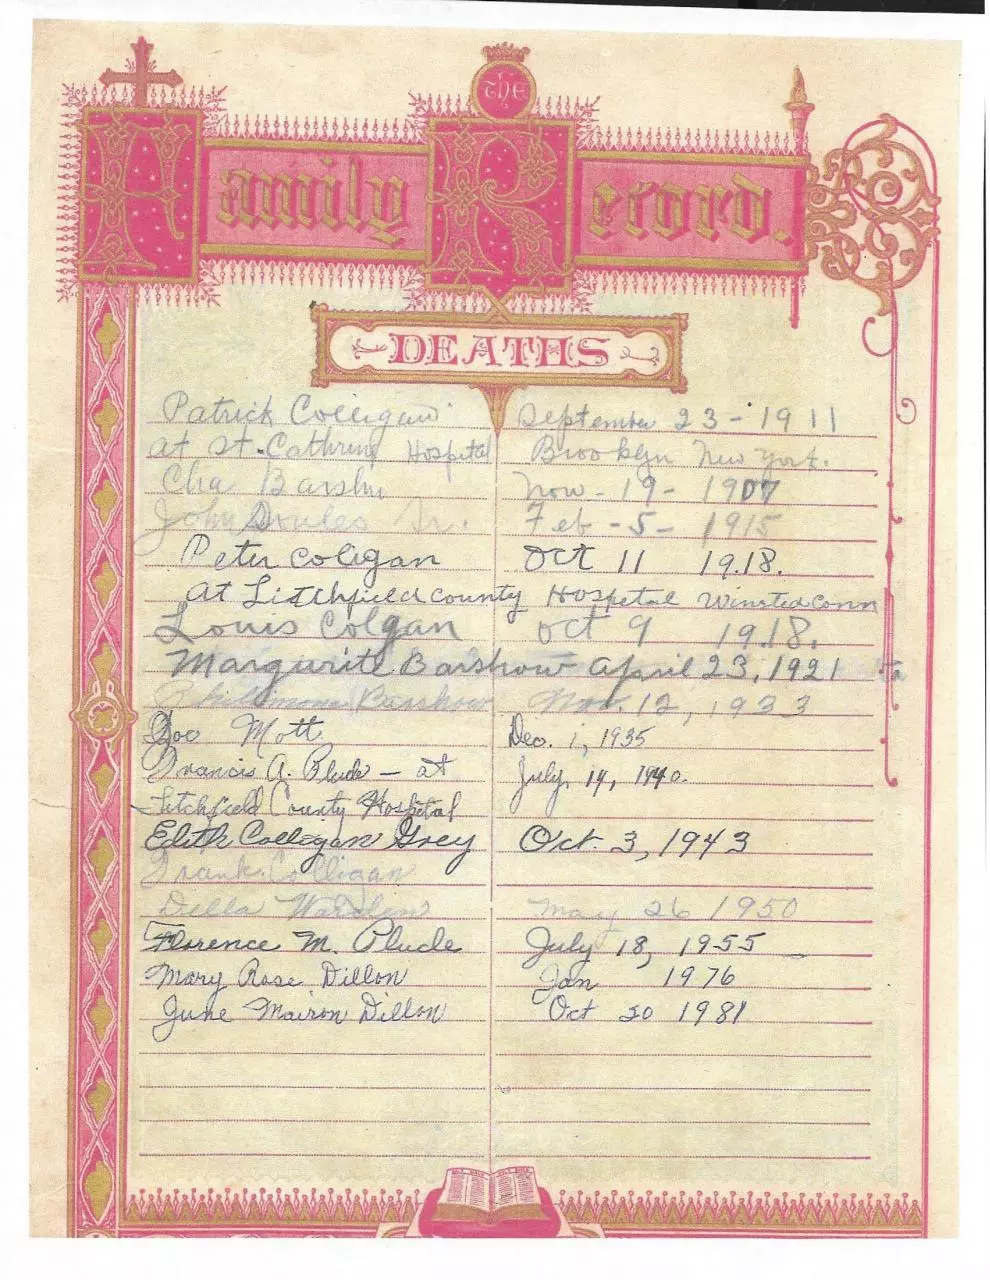 The
Family Record.
DEATHS
Patrick Colligan September 23 - 1911
at St. Cathrine Hospital Brooklyn New York.
Cha Barshu Nov - 19 - 1907
John Feb - 5 - 1915
Peter Coligan Oct 11 19.18.
at Litchfield county Hospetal Winsted Conn
Louis Colgan Oct 9 19.18.
Margurite Barshow April 23, 1921
Barshow Nov. 12, 1933
Joe Mott Dec. 1, 1935
Francis A. Plude - at July, 14, 1940.
Litchfield County Hospital
Edith Colligan Grey Oct. 3, 1943
Frank Colligan
Della May 26 1950
Florence M. Plude July 18, 1955
Mary Rose Dillon Jan 1976
June Mairon Dillon Oct 20 1981